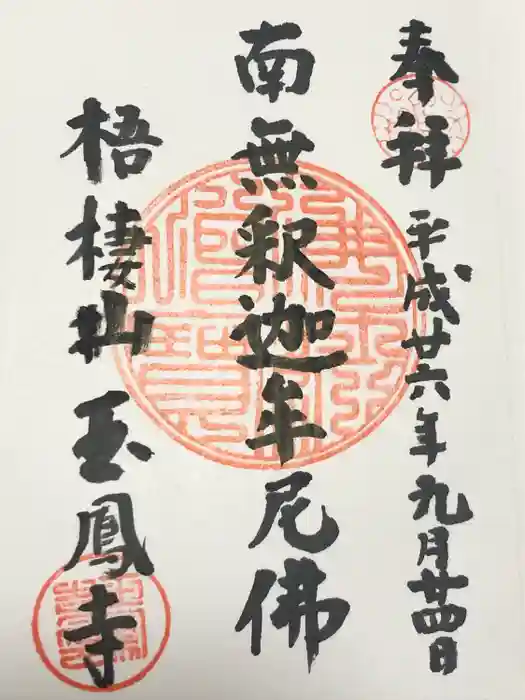 奉拜
平成廿六年九月廿四日
南無釈迦牟尼佛
梧棲山玉鳳寺